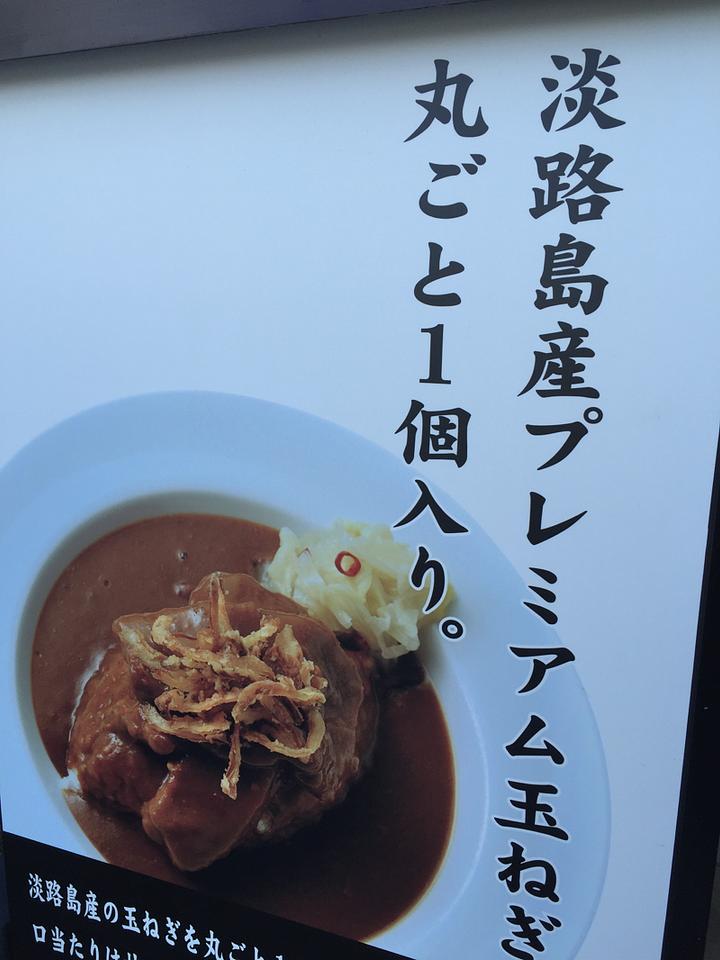 淡路島産プレミアム玉ねぎ
丸ごと1個入り。
淡路島産の玉ねぎを丸ごと
口当たりは